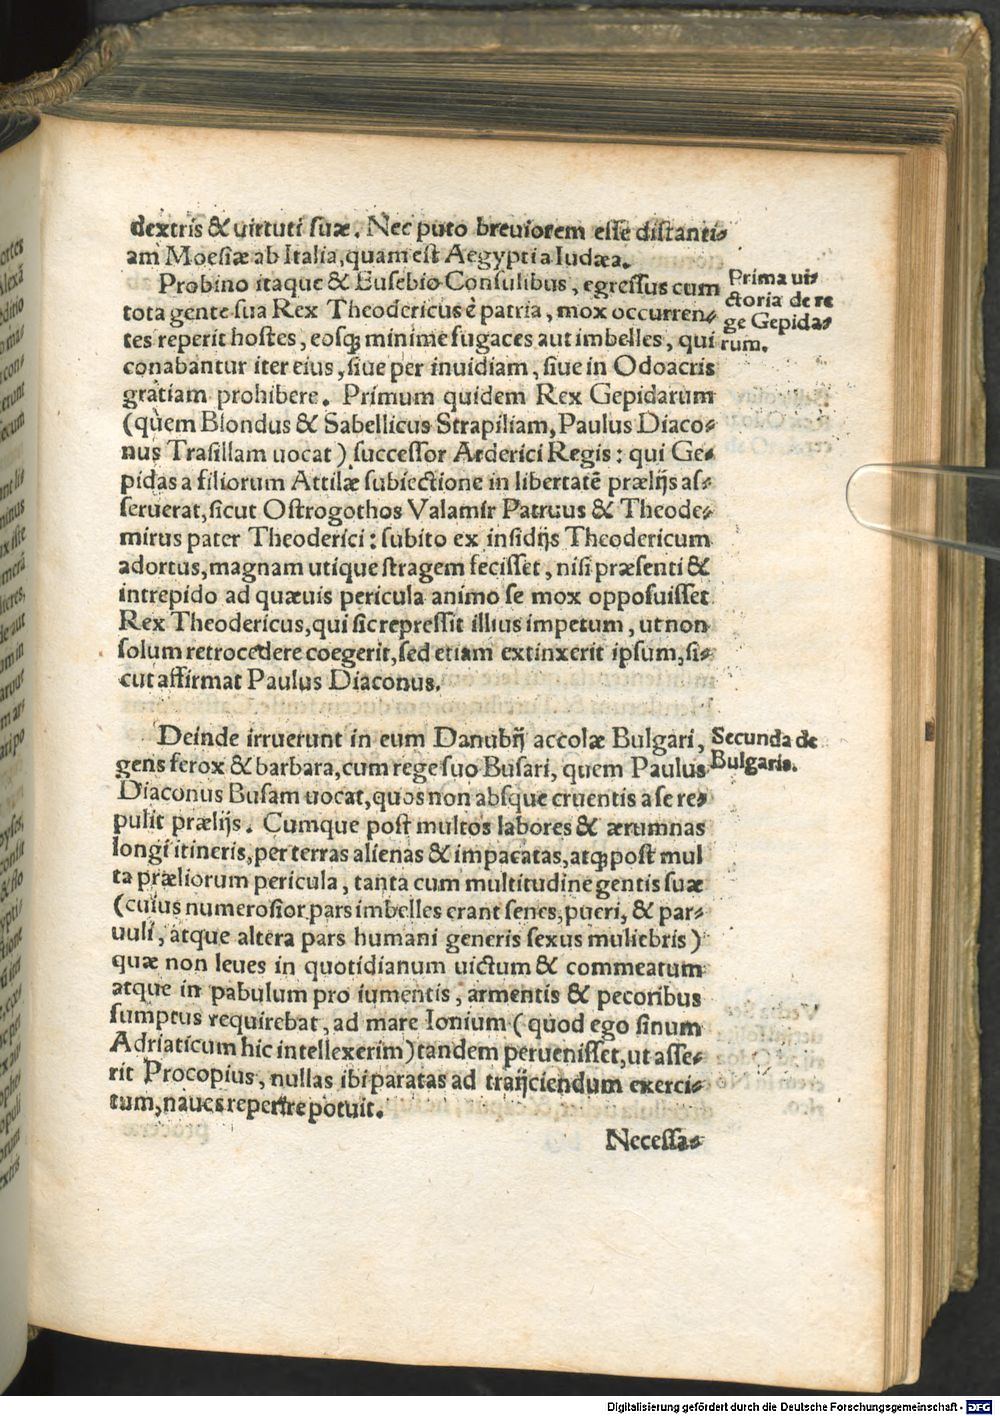 dextris & uirtuti suæ. Nec puto breuiorem esse distanti-
am Moesiæ ab Italia, quam est Aegypti a Iudæa.
Probino itaque & Eusebio Consulibus, egressus cum
tota gente sua Rex Theodericus è patria, mox occurren-
tes reperit hostes, eosq; minime fugaces aut imbelles, qui
conabantur iter eius, siue per inuidiam, siue in Odoacris
gratiam prohibere. Primum quidem Rex Gepidarum
(quem Blondus & Sabellicus Strapiliam, Paulus Diaco-
nus Trasillam uocat) successor Arderici Regis: qui Ge-
pidas a filiorum Attilæ subiectione in libertatē prælijs as-
seruerat, sicut Ostrogothos Valamir Patruus & Theode-
mirus pater Theoderici: subito ex insidijs Theodericum
adortus, magnam utique stragem fecisset, nisi præsenti &
intrepido ad quæuis pericula animo se mox opposuisset
Rex Theodericus, qui sic repressit illius impetum, ut non
solum retrocedere coegerit, sed etiam extinxerit ipsum, si-
cut affirmat Paulus Diaconus.
Prima ui-
ctoria de re
ge Gepida-
rum.
Deinde irruerunt in eum Danubij accolæ Bulgari,
gens ferox & barbara, cum rege suo Busari, quem Paulus
Diaconus Busam uocat, quos non absque cruentis a se re-
pulit prælijs. Cumque post multos labores & ærumnas
longi itineris, per terras alienas & impacatas, atq; post mul
ta præliorum pericula, tanta cum multitudine gentis suæ
(cuius numerosior pars imbelles erant senes, pueri, & par-
uuli, atque altera pars humani generis sexus muliebris)
quæ non leues in quotidianum uictum & commeatum
atque in pabulum pro iumentis, armentis & pecoribus
sumptus requirebat, ad mare Ionium (quod ego sinum
Adriaticum hic intellexerim) tandem peruenisset, ut asse-
rit Procopius, nullas ibi paratas ad traijciendum exerci-
tum, naues reperire potuit.
Secunda de
Bulgaris.
Necessa-
Digitalisierung gefördert durch die Deutsche Forschungsgemeinschaft - DFG